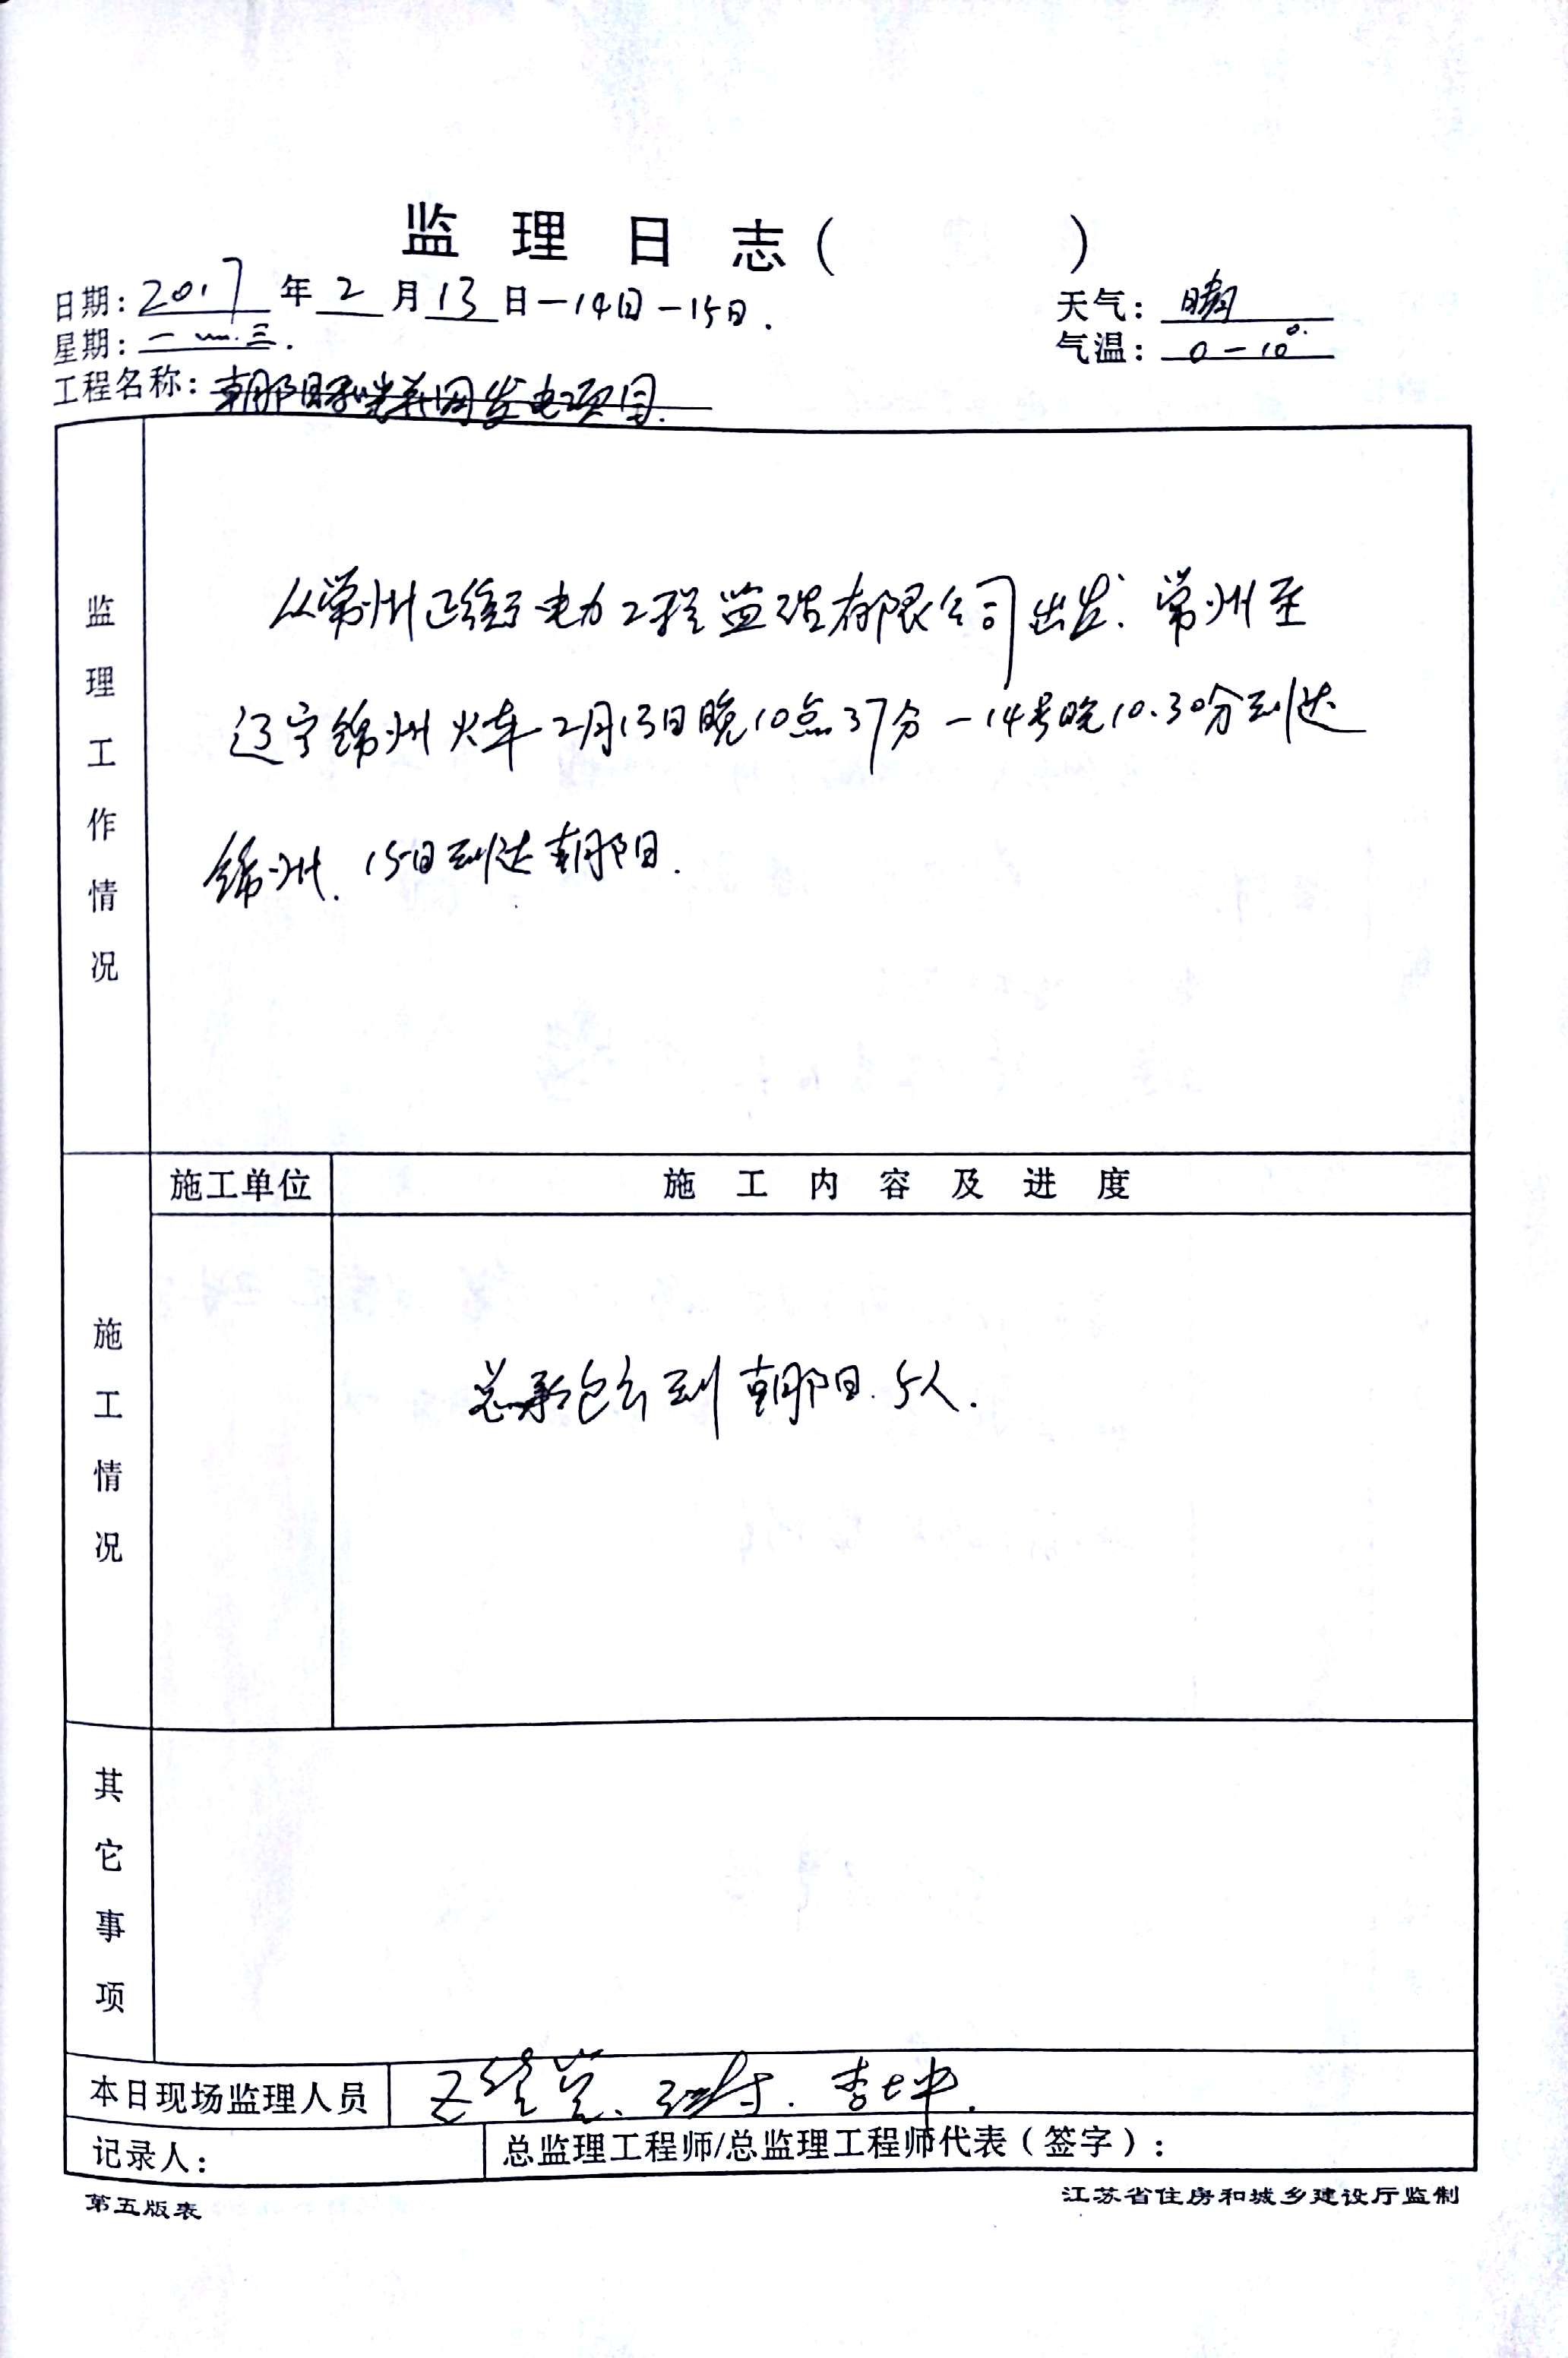 监理日志(          )
日期: 2017年2月13日-14日-15日.
天气: 晴
星期: 一 二 三.
气温: 0-10°.
工程名称: 朝阳 光并网发电项目.
监理工作情况
从常州正衡电力工程监理有限公司出发. 常州至
辽宁锦州火车 2月13日晚10点37分-14号晚10.30分到达
锦州. 15日到达朝阳.
施工情况
施工单位
施工内容及进度
总承包方到朝阳. 5人.
其它事项
本日现场监理人员
李坤.
记录人:
总监理工程师/总监理工程师代表(签字):
第五版表
江苏省住房和城乡建设厅监制